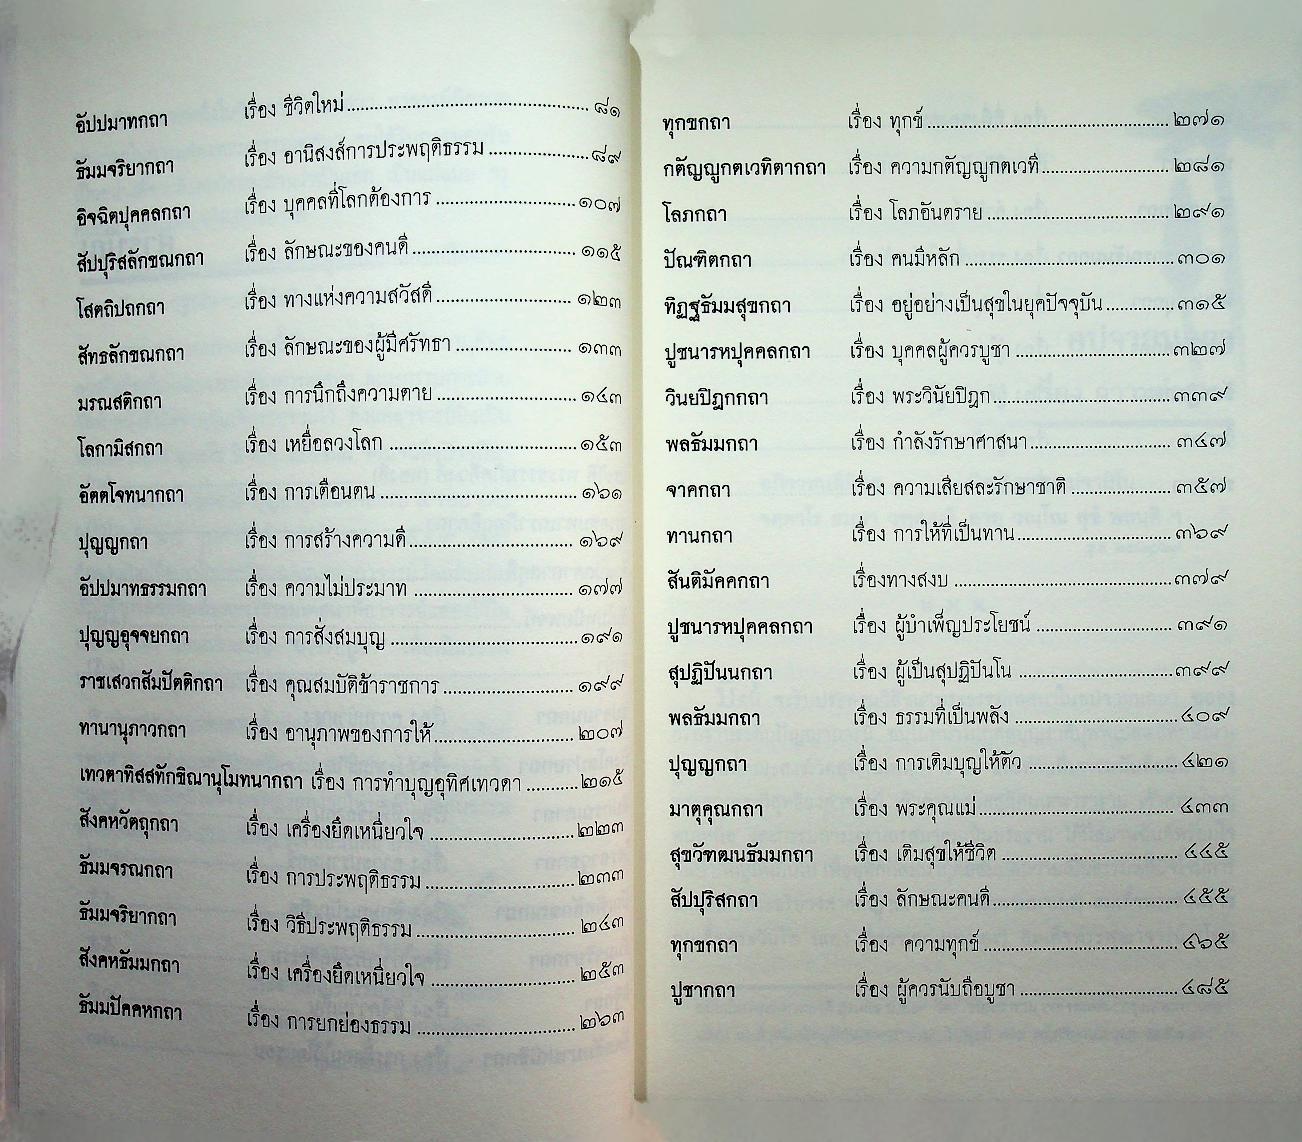 อัปปมาทกถา เรื่อง ชีวิตใหม่ ๘๑
ธัมมจริยากถา เรื่อง อานิสงส์การประพฤติธรรม ๘๙
อิจฉิตปุคคลกถา เรื่อง บุคคลที่โลกต้องการ ๑๐๗
สัปปุริสลักขณกถา เรื่อง ลักษณะของคนดี ๑๑๕
โสตถิปถกถา เรื่อง ทางแห่งความสวัสดี ๑๒๓
สัทธลักขณกถา เรื่อง ลักษณะของผู้มีศรัทธา ๑๓๓
มรณสติกถา เรื่อง การนึกถึงความตาย ๑๔๓
โลกามิสกถา เรื่อง เหยื่อลวงโลก ๑๕๓
อัตตโจทนากถา เรื่อง การเตือนตน ๑๖๑
ปุญญกถา เรื่อง การสร้างความดี ๑๖๙
อัปปมาทธรรมกถา เรื่อง ความไม่ประมาท ๑๗๗
ปุญญอุจจยกถา เรื่อง การสั่งสมบุญ ๑๙๑
ราชเสวกสัมปัตติกถา เรื่อง คุณสมบัติข้าราชการ ๑๙๙
ทานานุภาวกถา เรื่อง อานุภาพของการให้ ๒๐๗
เทวตาทิสสทักขิณานุโมทนากถา เรื่อง การทำบุญอุทิศเทวดา ๒๑๕
สังคหวัตถุกถา เรื่อง เครื่องยึดเหนี่ยวใจ ๒๒๓
ธัมมจรณกถา เรื่อง การประพฤติธรรม ๒๓๓
ธัมมจริยากถา เรื่อง วิธีประพฤติธรรม ๒๔๓
สังคหธัมมกถา เรื่อง เครื่องยึดเหนี่ยวใจ ๒๕๓
ธัมมปัคคหกถา เรื่อง การยกย่องธรรม ๒๖๓
ทุกขกถา เรื่อง ทุกข์ ๒๗๑
กตัญญูกตเวทิตากถา เรื่อง ความกตัญญูกตเวที ๒๘๑
โลภกถา เรื่อง โลภอันตราย ๒๙๑
ปัณฑิตกถา เรื่อง คนมีหลัก ๓๐๑
ทิฏฐธัมมสุขกถา เรื่อง อยู่อย่างเป็นสุขในยุคปัจจุบัน ๓๑๕
ปูชนารหปุคคลกถา เรื่อง บุคคลผู้ควรบูชา ๓๒๗
วินยปิฎกกถา เรื่อง พระวินัยปิฎก ๓๓๙
พลธัมมกถา เรื่อง กำลังรักษาศาสนา ๓๔๗
จาคกถา เรื่อง ความเสียสละรักษาชาติ ๓๕๗
ทานกถา เรื่อง การให้ที่เป็นทาน ๓๖๙
สันติมัคคกถา เรื่องทางสงบ ๓๗๙
ปูชนารหปุคคลกถา เรื่อง ผู้บำเพ็ญประโยชน์ ๓๙๑
สุปฏิปันนกถา เรื่อง ผู้เป็นสุปฏิปันโน ๓๙๙
พลธัมมกถา เรื่อง ธรรมที่เป็นพลัง ๔๐๙
ปุญญกถา เรื่อง การเติมบุญให้ตัว ๔๒๑
มาตุคุณกถา เรื่อง พระคุณแม่ ๔๓๓
สุขวัฑฒนธัมมกถา เรื่อง เติมสุขให้ชีวิต ๔๔๕
สัปปุริสกถา เรื่อง ลักษณะคนดี ๔๕๕
ทุกขกถา เรื่อง ความทุกข์ ๔๖๕
ปูชากถา เรื่อง ผู้ควรนับถือบูชา ๔๘๕